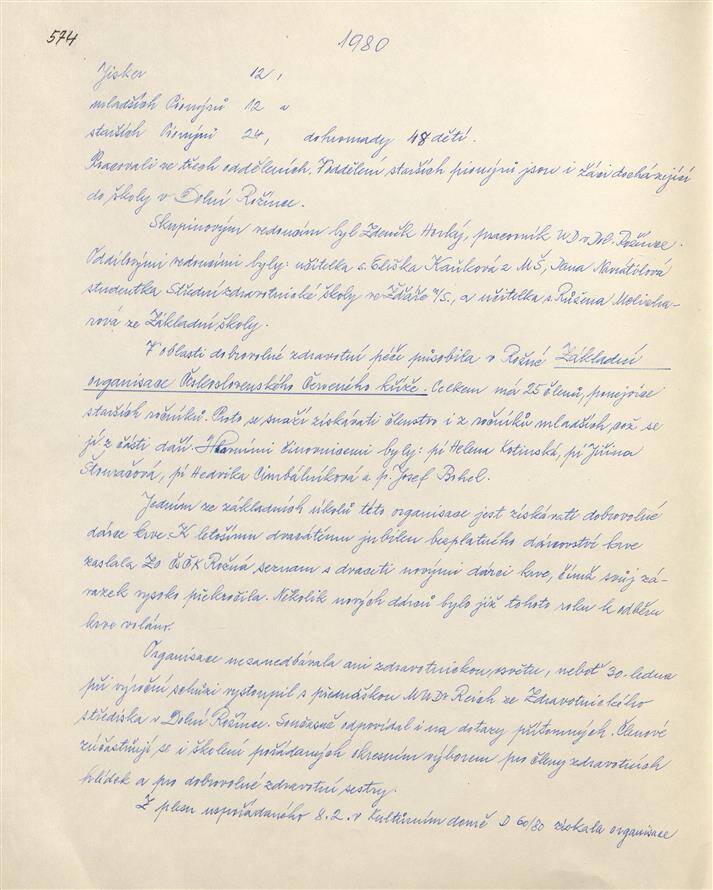 574
1980
Jisker 12,
mladších Pionýrů 12 a
starších Pionýrů 24, dohromady 48 dětí.
Pracovali ve třech odděleních. V oddělení starších pionýrů jsou i žáci docházející
do školy v Dolní Rožínce.
Skupinovým vedoucím byl Zdeněk Horký, pracovník UD v Dol. Rožínce.
Oddílovými vedoucími byly: učitelka s. Eliška Kaňková z MŠ, Jana Navrátilová
studentka Střední zdravotnické školy ve Žďáře n/S., a učitelka s. Růžena Melicha-
rová ze Základní školy.
V oblasti dobrovolné zdravotní péče působila v Rožné Základní
organisace Československého Červeného kříže. Celkem má 25 členů, ponejvíce
starších ročníků. Proto se snaží získávati členstvo i z ročníků mladších, což se
jí z části daří. Hlavními činovnicemi byly: pí Helena Kotinská, pí Jiřina
pí Hedvika Cimbálníková a p. Josef
Jedním ze základních úkolů této organisace jest získávati dobrovolné
dárce krve. K letošnímu dvacátému jubileu bezplatného dárcovství krve
zaslala Zo ČSČK Rožná seznam s dvaceti novými dárci krve, čímž svůj zá-
vazek vysoko překročila. Několik nových dárců bylo již tohoto roku k odběru
krve voláno.
Organisace nezanedbávala ani zdravotnickou osvětu, neboť 30. ledna
při výroční schůzi vystoupil s přednáškou MUDr Reich ze Zdravotnického
střediska v Dolní Rožínce. Současně odpovídal i na dotazy přítomných. Členové
zúčastňují se i školení pořádaných okresním výborem pro členy zdravotních
hlídek a pro dobrovolné zdravotní sestry.
Z plesu uspořádaného 8.2. v Kulturním domě D 60/80 získala organisace